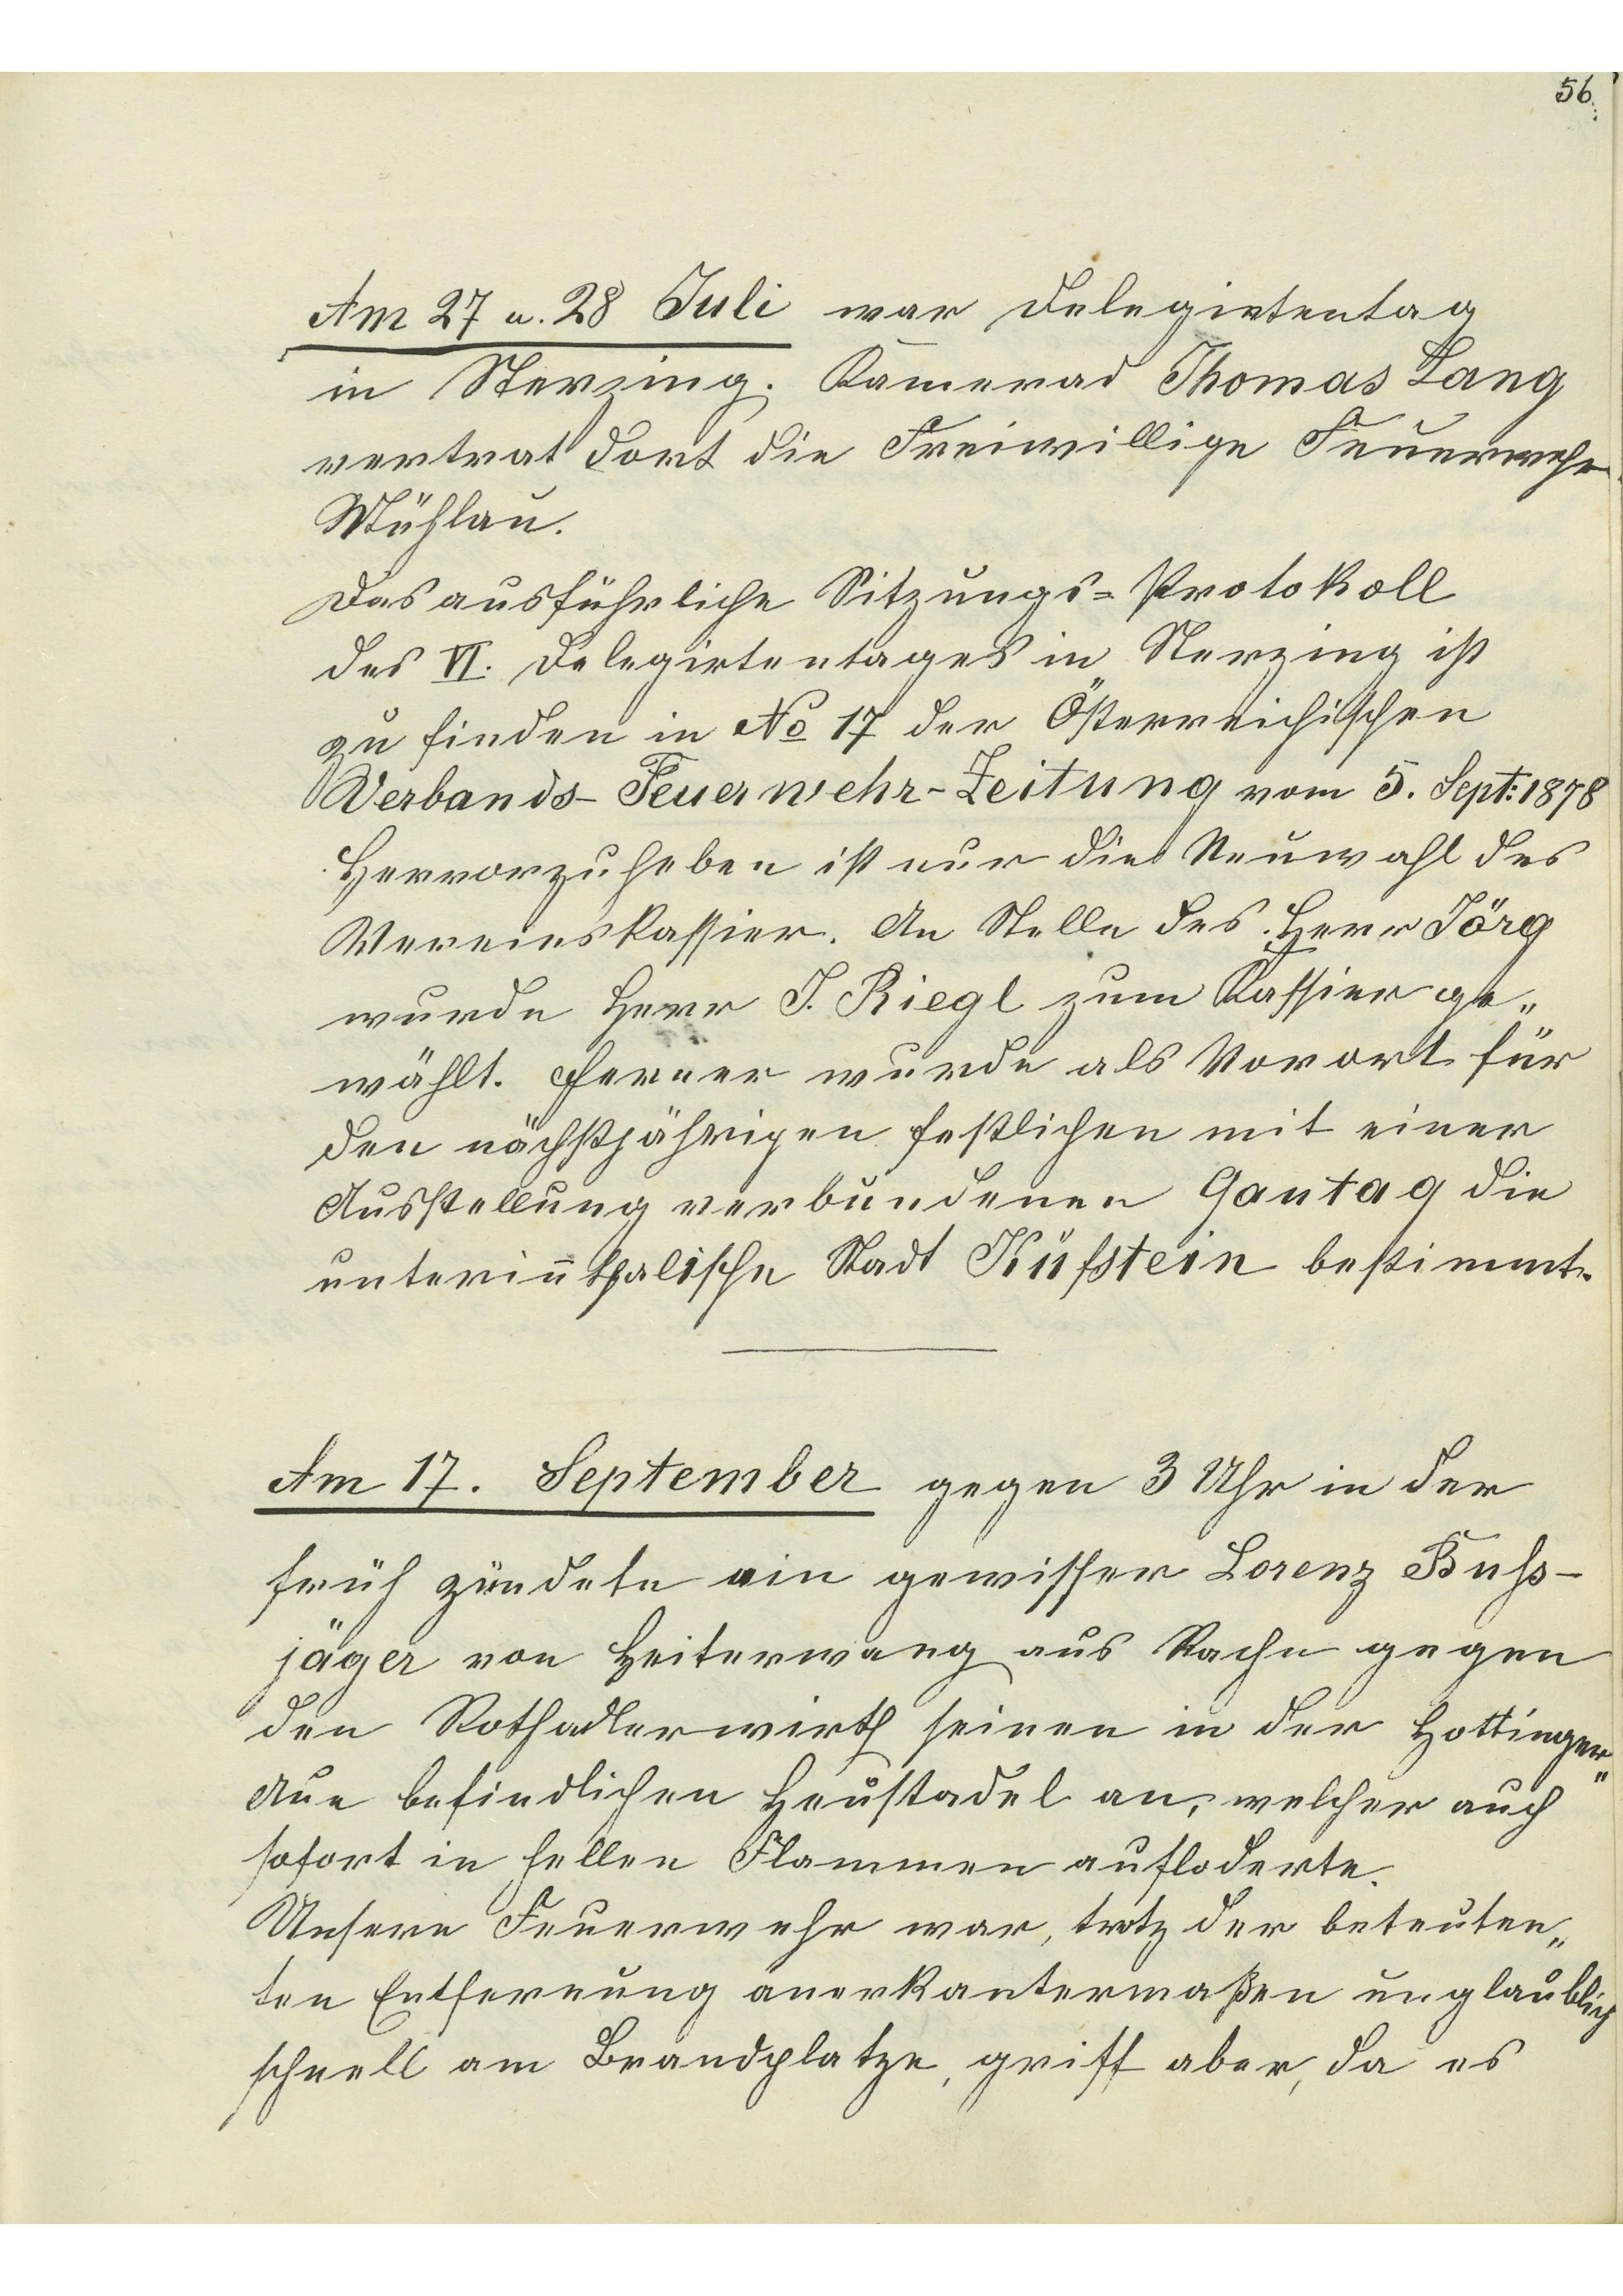 56.
Am 27 u. 28 Juli war Delegirtentag
in Sterzing. Kamerad Thomas Lang
vertrat dort die Freiwillige Feuerwehr
Mühlau.
Das ausführliche Sitzungs=Protokoll
des VI. Delegirtentages in Sterzing ist
zu finden in No 17 der Österreichischen
Verbands-Feuerwehr-Zeitung vom 5. Sept: 1878
Hervorzuheben ist nur die Neuwahl des
Vereinskassier. An Stelle des Herr Jörg
wurde Herr J. Riegl zum Kassier ge„
wählt. Ferner wurde als Vorort für
den nächstjährigen festlichen mit einer
Ausstellung verbundenen Gautag die
unterin̄thalische Stadt Kufstein bestimmt.
Am 17. September gegen 3 Uhr in der
früh zündete ein gewisser Lorenz Buß-
jäger von Heiterwang aus Rache gegen
den Rothadlerwirth seinen in der Hottinger„
Aue befindlichen Heustadel an, welcher auch
sofort in hellen Flammen aufloderte.
Unsere Feuerwehr war, trotz der beteuten„
ten Entfernung anerkantermaßen unglaublich
schnell am Brandplatze, griff aber, da es